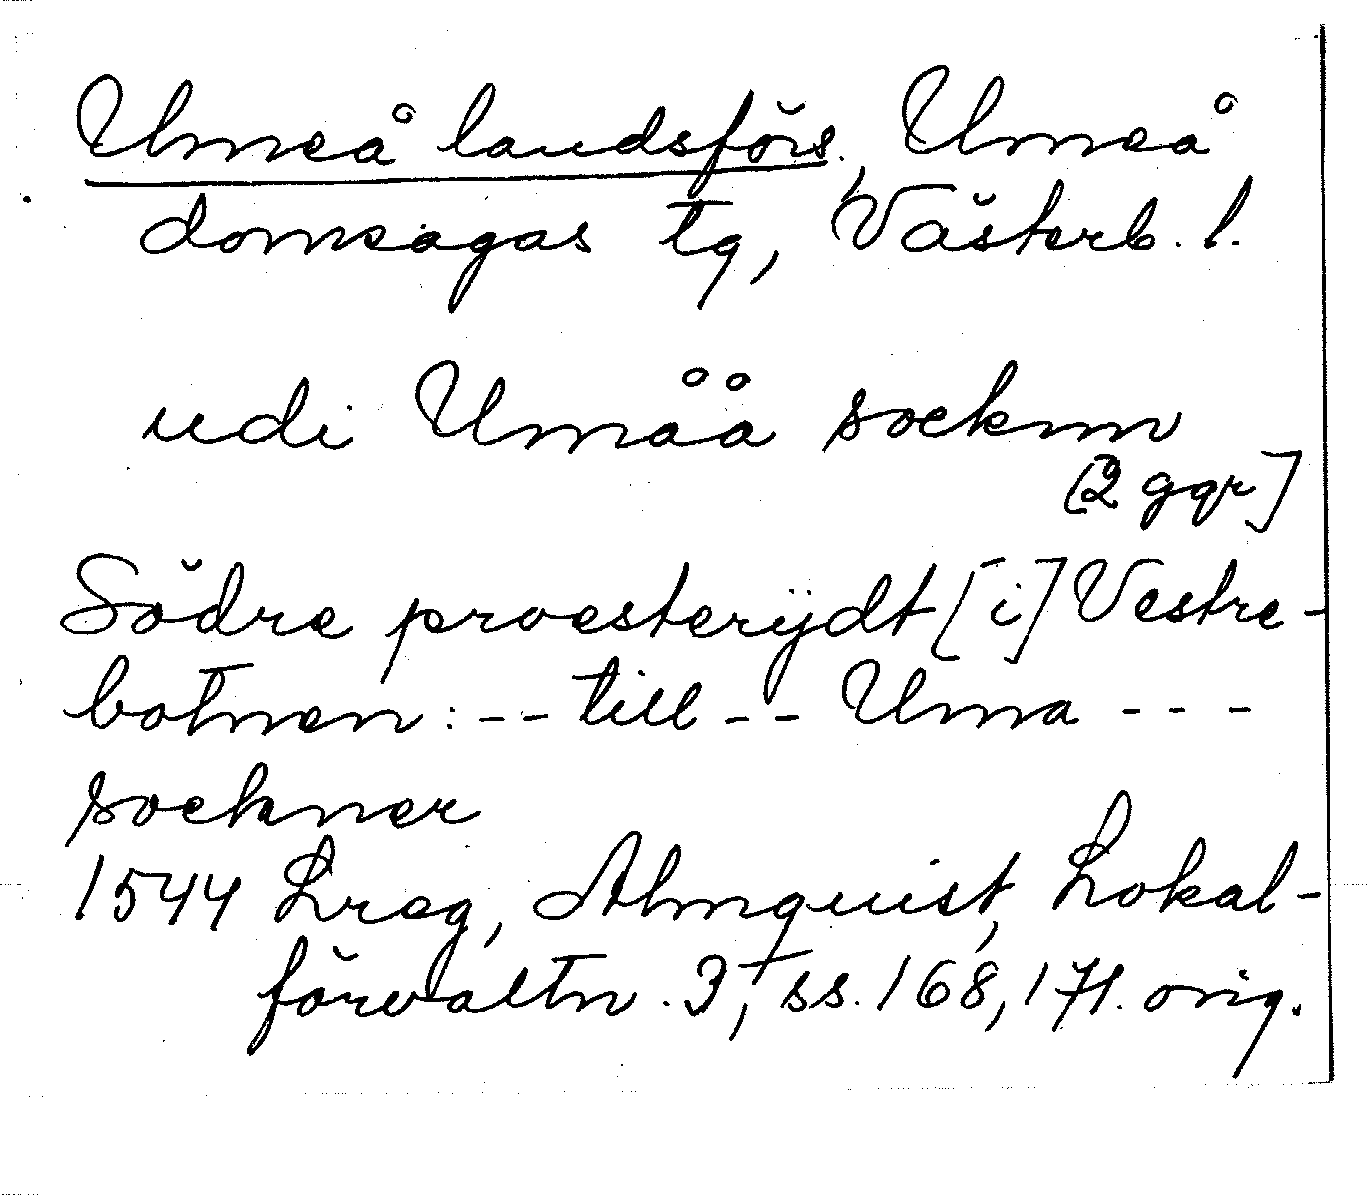 Umeå landsförs., Umeå
domsagas tg, Västerb. l.
udi Umåå socknn
[2 ggr]
Södre proesterijdt [i] Vestre-
botnen: -- till -- Uma ---
sockner
1544 Lreg, Almquist, Lokal-
förvaltn. 3, ss. 168, 171. orig.